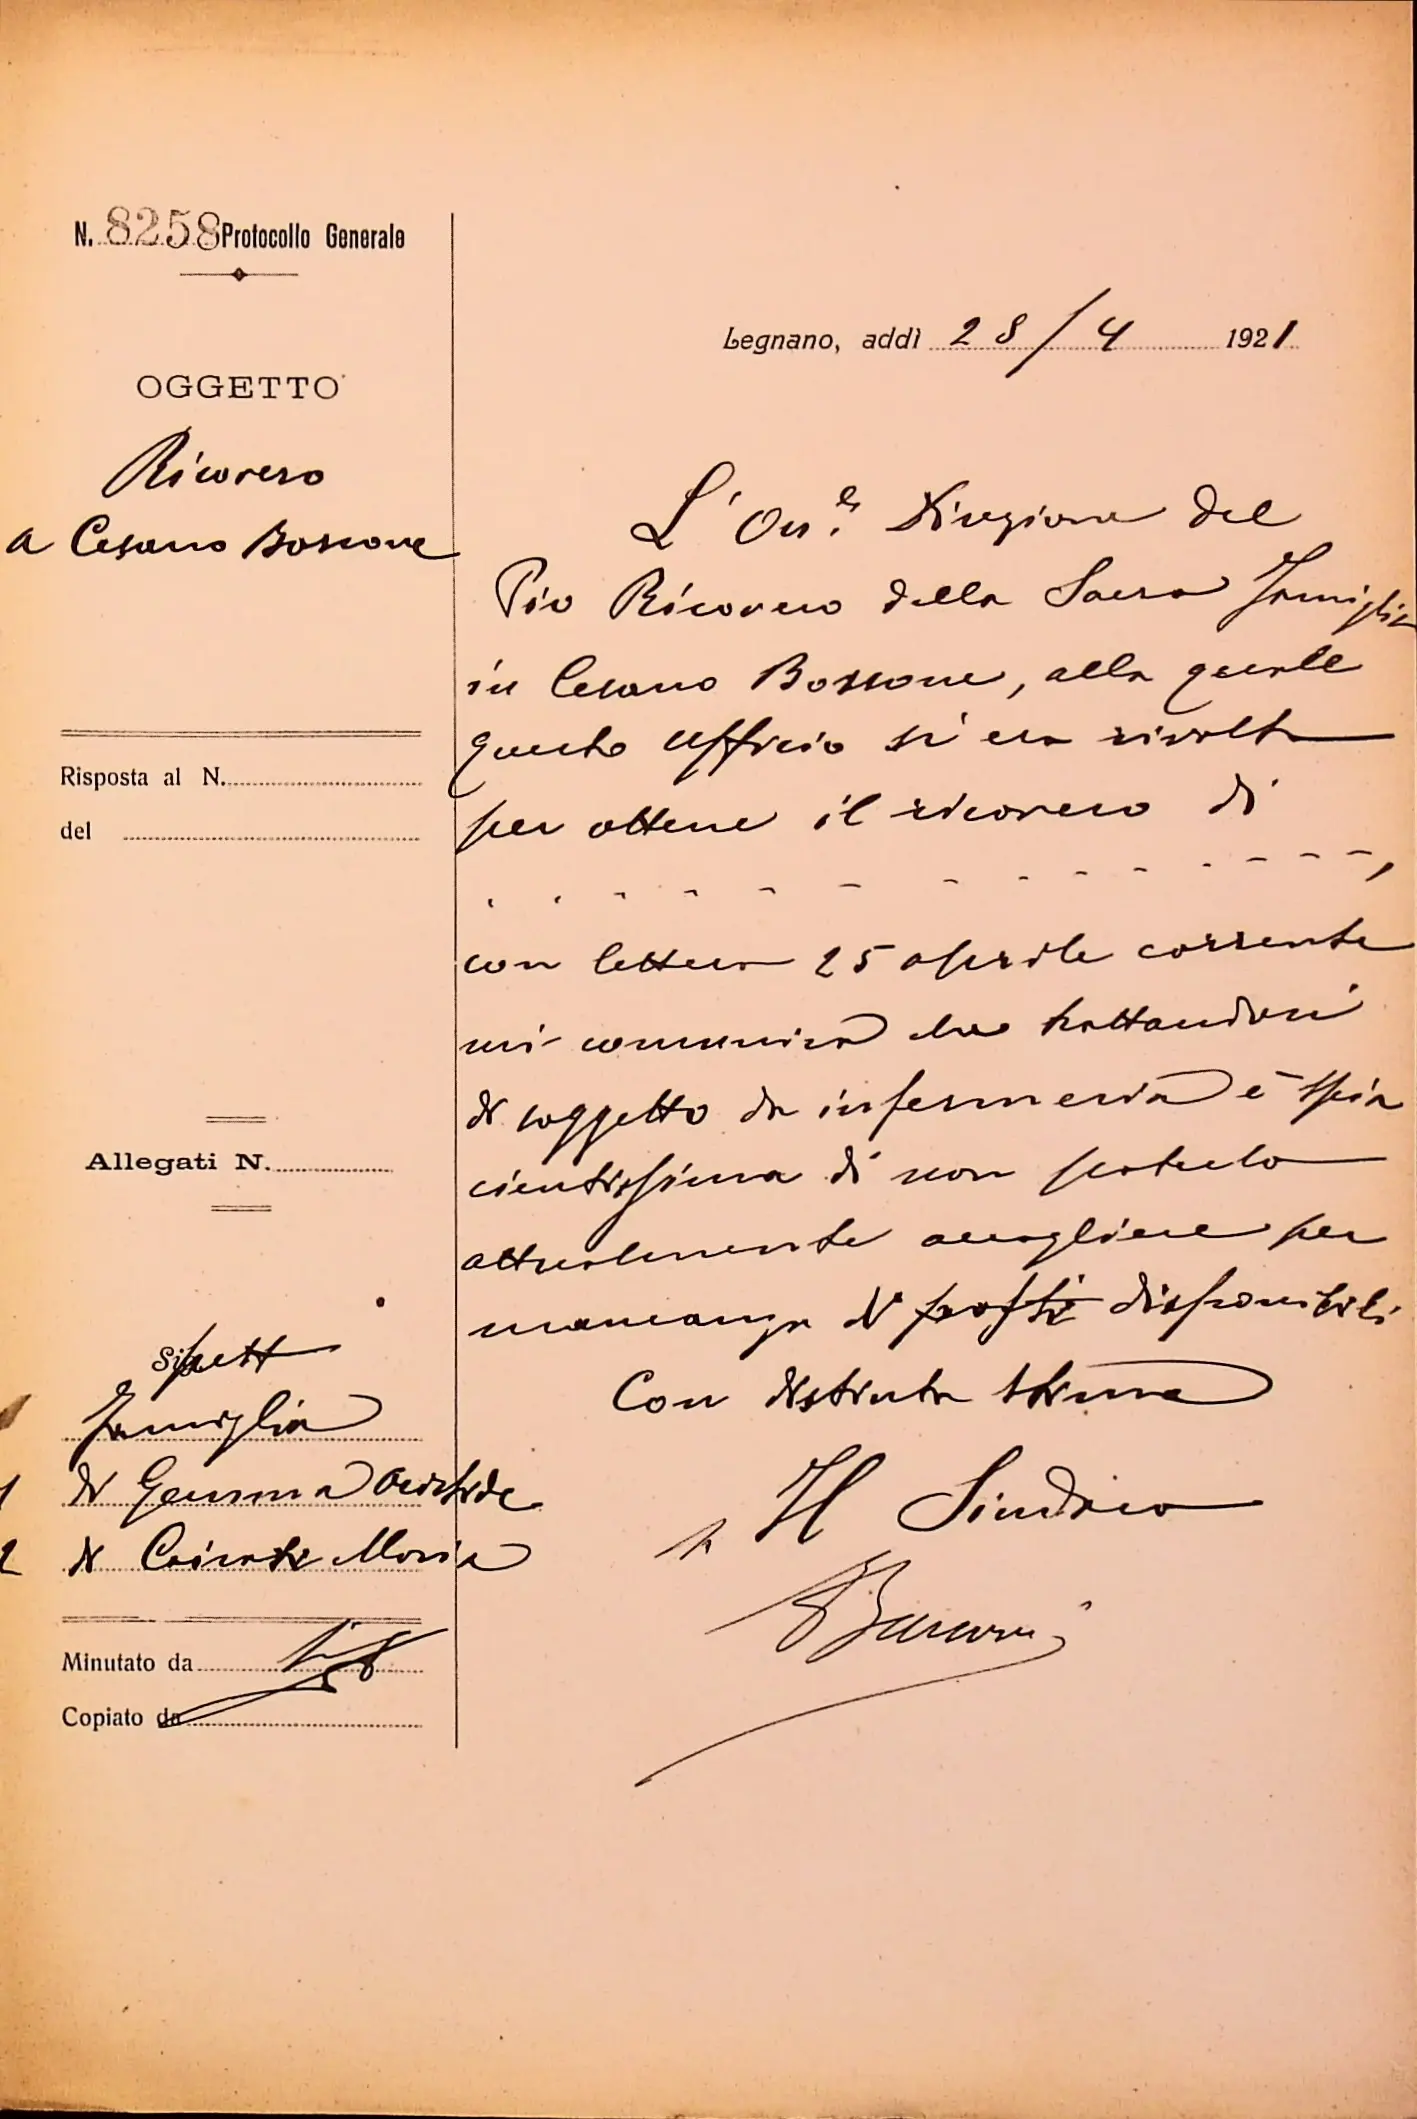 N. 8258 Protocollo Generale
OGGETTO
Ricovero
a Cesano Boscone
Risposta al N.
del
Allegati N.
Spett
Famiglia
1 di Gemma Aristide
2 di Maria
Minutato da
Copiato da
Legnano, addì 28/4 1921
L'On.le Direzione del
Pio Ricovero della Sacra Famiglia
in Cesano Bossone, alla quale
questo ufficio si era rivolto
per ottenere il ricovero di
. . . . . . - - - - - - - - - ,
con lettera 25 aprile corrente
mi comunica che trattandosi
di soggetto da infermeria è spia
centissima di non poterlo
attualmente accogliere per
mancanza di posti disponibili
Con distinta stima
Il Sindaco